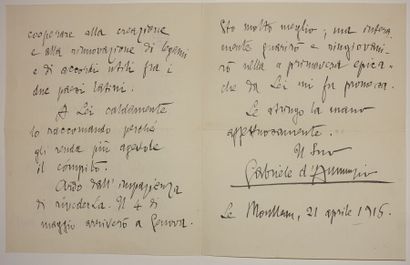 cooperare alla creazione
e alla rinnovazione di legami
e di accordi utili fra i
due paesi latini.
A Lei caldamente
lo raccomando perché
gli renda più agevole
il compito.
Ardo dall'impazienza
di rivederLa. Il 4 di
maggio arriverò a Genova.
Sto molto meglio; ma intera-
mente guarirò e ringiovani-
rò nella primavera epica
che da Lei mi fu promessa.
Le stringo la mano
affettuosamente.
Il Suo
Gabriele d'Annunzio
Le Moulleau, 21 aprile 1915.